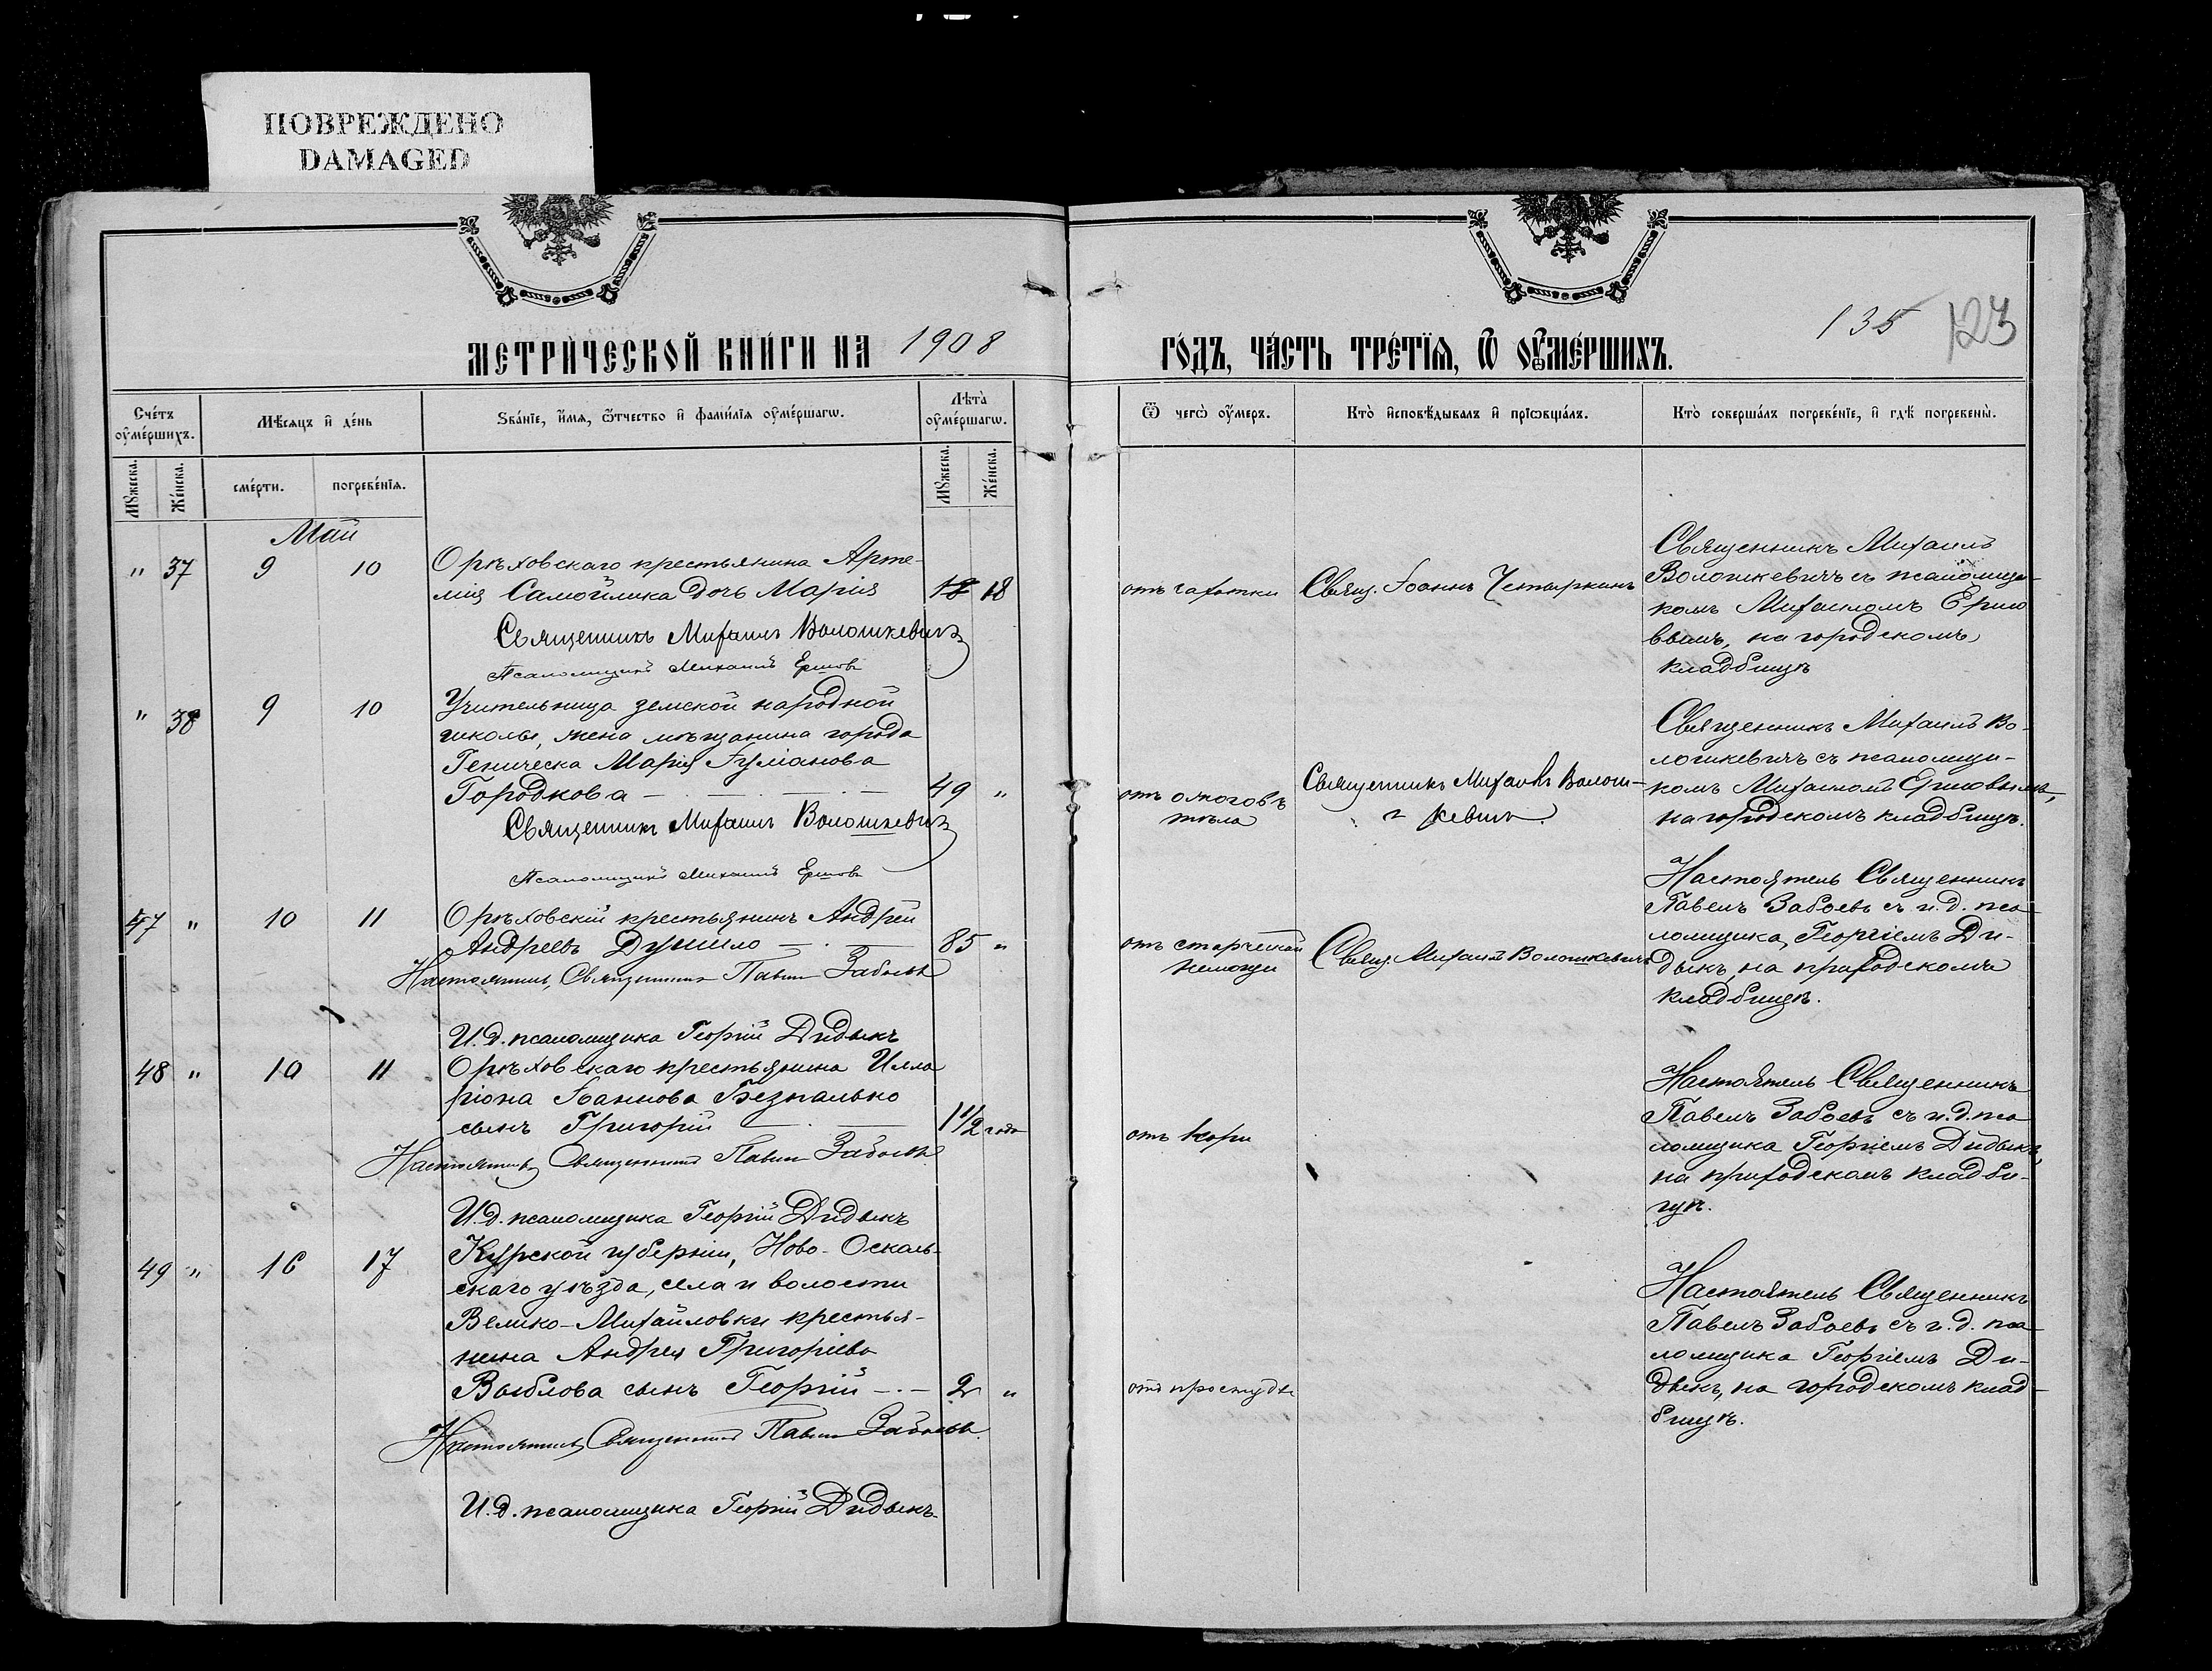 ПОВРЕЖДЕНО
DAMAGED
МЕТРИ́ЧЕСКОЙ КНИ́ГИ НА 1908
ГО́ДЪ, ЧА́СТЬ ТРЕ́ТЇѦ, Ѽ ОУ҆МЕ́РШИХЪ.
135 123
Сче́тъ оу҆ме́ршихъ.
Мѣ́сѧцъ и҆ де́нь
Зва́нїе, и҆́мѧ, ѻ҆́тчество и҆ фами́лїѧ оу҆ме́ршагѡ.
Лѣ́та̀ оу҆ме́ршагѡ.
Ѿ чегѡ̀ оу҆́меръ.
Кто̀ и҆сповѣ́дывалъ и҆ прїѡбща́лъ.
Кто̀ соверша́лъ погребе́нїе, и҆ гдѣ̀ погребены̀.
Мꙋ́жеска. Же́нска.
сме́рти. погребе́нїѧ.
Мꙋ́жеска. Же́нска.
Май
" 37 9 10 Орѣховскаго крестьянина Арте-
мія Самойлика дочь Марія 18 18
Священникъ Михаилъ Волошкевичъ
Псаломщикъ Михаилъ Ершовъ
отъ чахотки
Свящ. Іоаннъ Четыркинъ
Священникъ Михаилъ
Волошкевичъ съ псаломщи-
комъ Михаиломъ Ершо
вымъ, на городскомъ
кладбищѣ
" 38 9 10 Учительница земской народной
школы, жена мѣщанина города
Геническа Марія Іуліанова
Городкова 49 "
Священникъ Михаилъ Волошкевичъ
Псаломщикъ Михаилъ Ершовъ
отъ ожоговъ
тѣла
Священникъ Михаилъ Волош-
кевичъ
Священникъ Михаилъ Во-
лошкевичъ съ псаломщи-
комъ Михаиломъ Ершовымъ,
на городскомъ кладбищѣ.
47 " 10 11 Орѣховскій крестьянинъ Андрей
Андреевъ 85 "
Настоятель, Священникъ Павелъ Забоевъ
И. д. псаломщика Георгій Дидыкъ
отъ старческой
немощи
Свящ. Михаилъ Волошкевичъ
Настоятель Священникъ
Павелъ Забоевъ съ и. д. пса
ломщика Георгіемъ Ди-
дыкъ, на приходскомъ
кладбищѣ.
48 " 10 11 Орѣховскаго крестьянина Илла
ріона Іоаннова Безпалько
сынъ Григорій 1 1/2 года
Настоятель Священникъ Павелъ Забоевъ
И. д. псаломщика Георгій Дидыкъ
отъ кори
Настоятель Священникъ
Павелъ Забоевъ съ и. д. пса
ломщика Георгіемъ Дидыкъ,
на приходскомъ кладби-
щѣ.
49 " 16 17 Курской губерніи, Ново-Осколь-
скаго уѣзда, села и волости
Велико-Михайловки крестья-
нина Андрея Григоріева
сынъ Георгій 2 "
Настоятель Священникъ Павелъ Забоевъ.
И. д. псаломщика Георгій Дидыкъ
отъ простуды
Настоятель Священникъ
Павелъ Забоевъ съ и. д. пса
ломщика Георгіемъ Ди-
дыкъ, на городскомъ клад-
бищѣ.